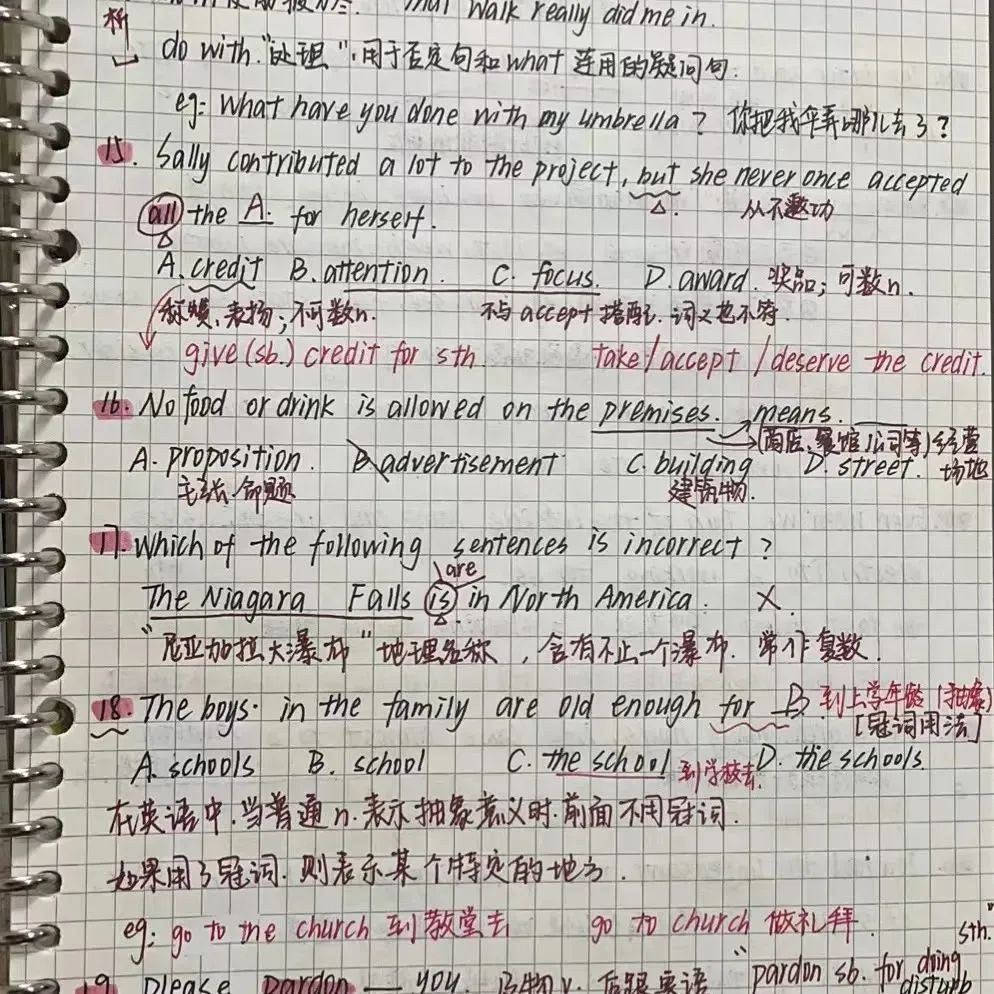 That walk really did me in.
析
do with "处理", 用于否定句和what 连用的疑问句.
eg: What have you done with my umbrella? 你把我伞弄哪儿去了?
15. Sally contributed a lot to the project, but she never once accepted
从不邀功
all the A. for herself.
A. credit B. attention. C. focus. D. award. 奖品; 可数n.
称赞、表扬; 不可数n. 不与 accept 搭配. 词义也不符.
give (sb.) credit for sth. take/accept/deserve the credit.
16. No food or drink is allowed on the premises. means
(商店、餐馆、公司等)经营
A. proposition. B advertisement C. building D. street. 场地
主张、命题 建筑物.
17. Which of the following sentences is incorrect?
are
The Niagara Falls is in North America. X.
"尼亚加拉大瀑布" 地理名称, 含有不止一个瀑布. 常作复数.
18. The boys in the family are old enough for B. 到上学年龄 (抽象)
[冠词用法]
A. schools B. school C. the school 到学校去. D. the schools.
在英语中, 当普通n. 表示抽象意义时, 前面不用冠词.
如果用了冠词, 则表示某个特定的地方.
eg: go to the church 到教堂去 go to church 做礼拜.
sth."
19 Please pardon ___ you. 及物v. 后跟宾语 "pardon sb. for doing
disturb